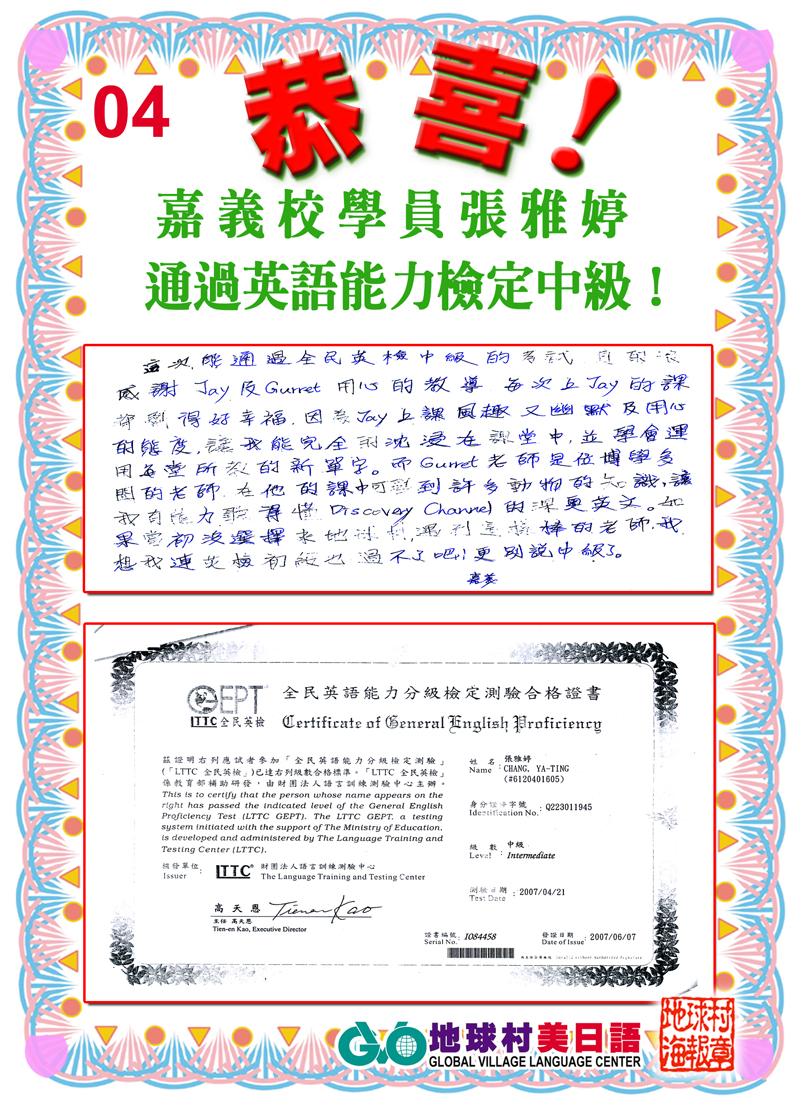 恭喜!
04
嘉義校學員張雅婷
通過英語能力檢定中級！
這次能通過全民英檢中級的考試,
感謝 Jay 及 Gurret 用心的教導 每次上Jay的課
得好幸福.因為Jay上課風趣又幽默及用心
的態度,讓我能完全的沈浸在課堂中,並學會運
用每堂所教的新單字。而Gurret老師是位博學多
聞的老師.在他的課中可學到許多動物的知識,讓
我有能力聽得懂 Discovery Channel 的深奧英文。如
果當初沒選擇來地球村,遇到這樣棒的老師,我
想我連英檢初級也過不了吧!更別說中級了。
嘉義
GEPT
LTTC 全民英檢
全民英語能力分級檢定測驗合格證書
Certificate of General English Proficiency
茲證明右列應試者參加「全民英語能力分級檢定測驗」
(「LTTC 全民英檢」)已達右列級數合格標準。「LTTC 全民英檢」
係教育部補助研發，由財團法人語言訓練測驗中心主辦。
This is to certify that the person whose name appears on the
right has passed the indicated level of the General English
Proficiency Test (LTTC GEPT). The LTTC GEPT, a testing
system initiated with the support of The Ministry of Education,
is developed and administered by The Language Training and
Testing Center (LTTC).
核發單位
Issuer :
LTTC®
財團法人語言訓練測驗中心
The Language Training and Testing Center
高天恩 Tien-en Kao
主任 高天恩
Tien-en Kao, Executive Director
姓名 : 張雅婷
Name : CHANG, YA-TING
(#6120401605)
身分證字號 : Q223011945
Identification No.
級數 : 中級
Level : Intermediate
測驗日期 : 2007/04/21
Test Date
證書編號 : 1084458
Serial No.
發證日期 : 2007/06/07
Date of Issue
地球村美日語
GLOBAL VILLAGE LANGUAGE CENTER
地球村
海報章